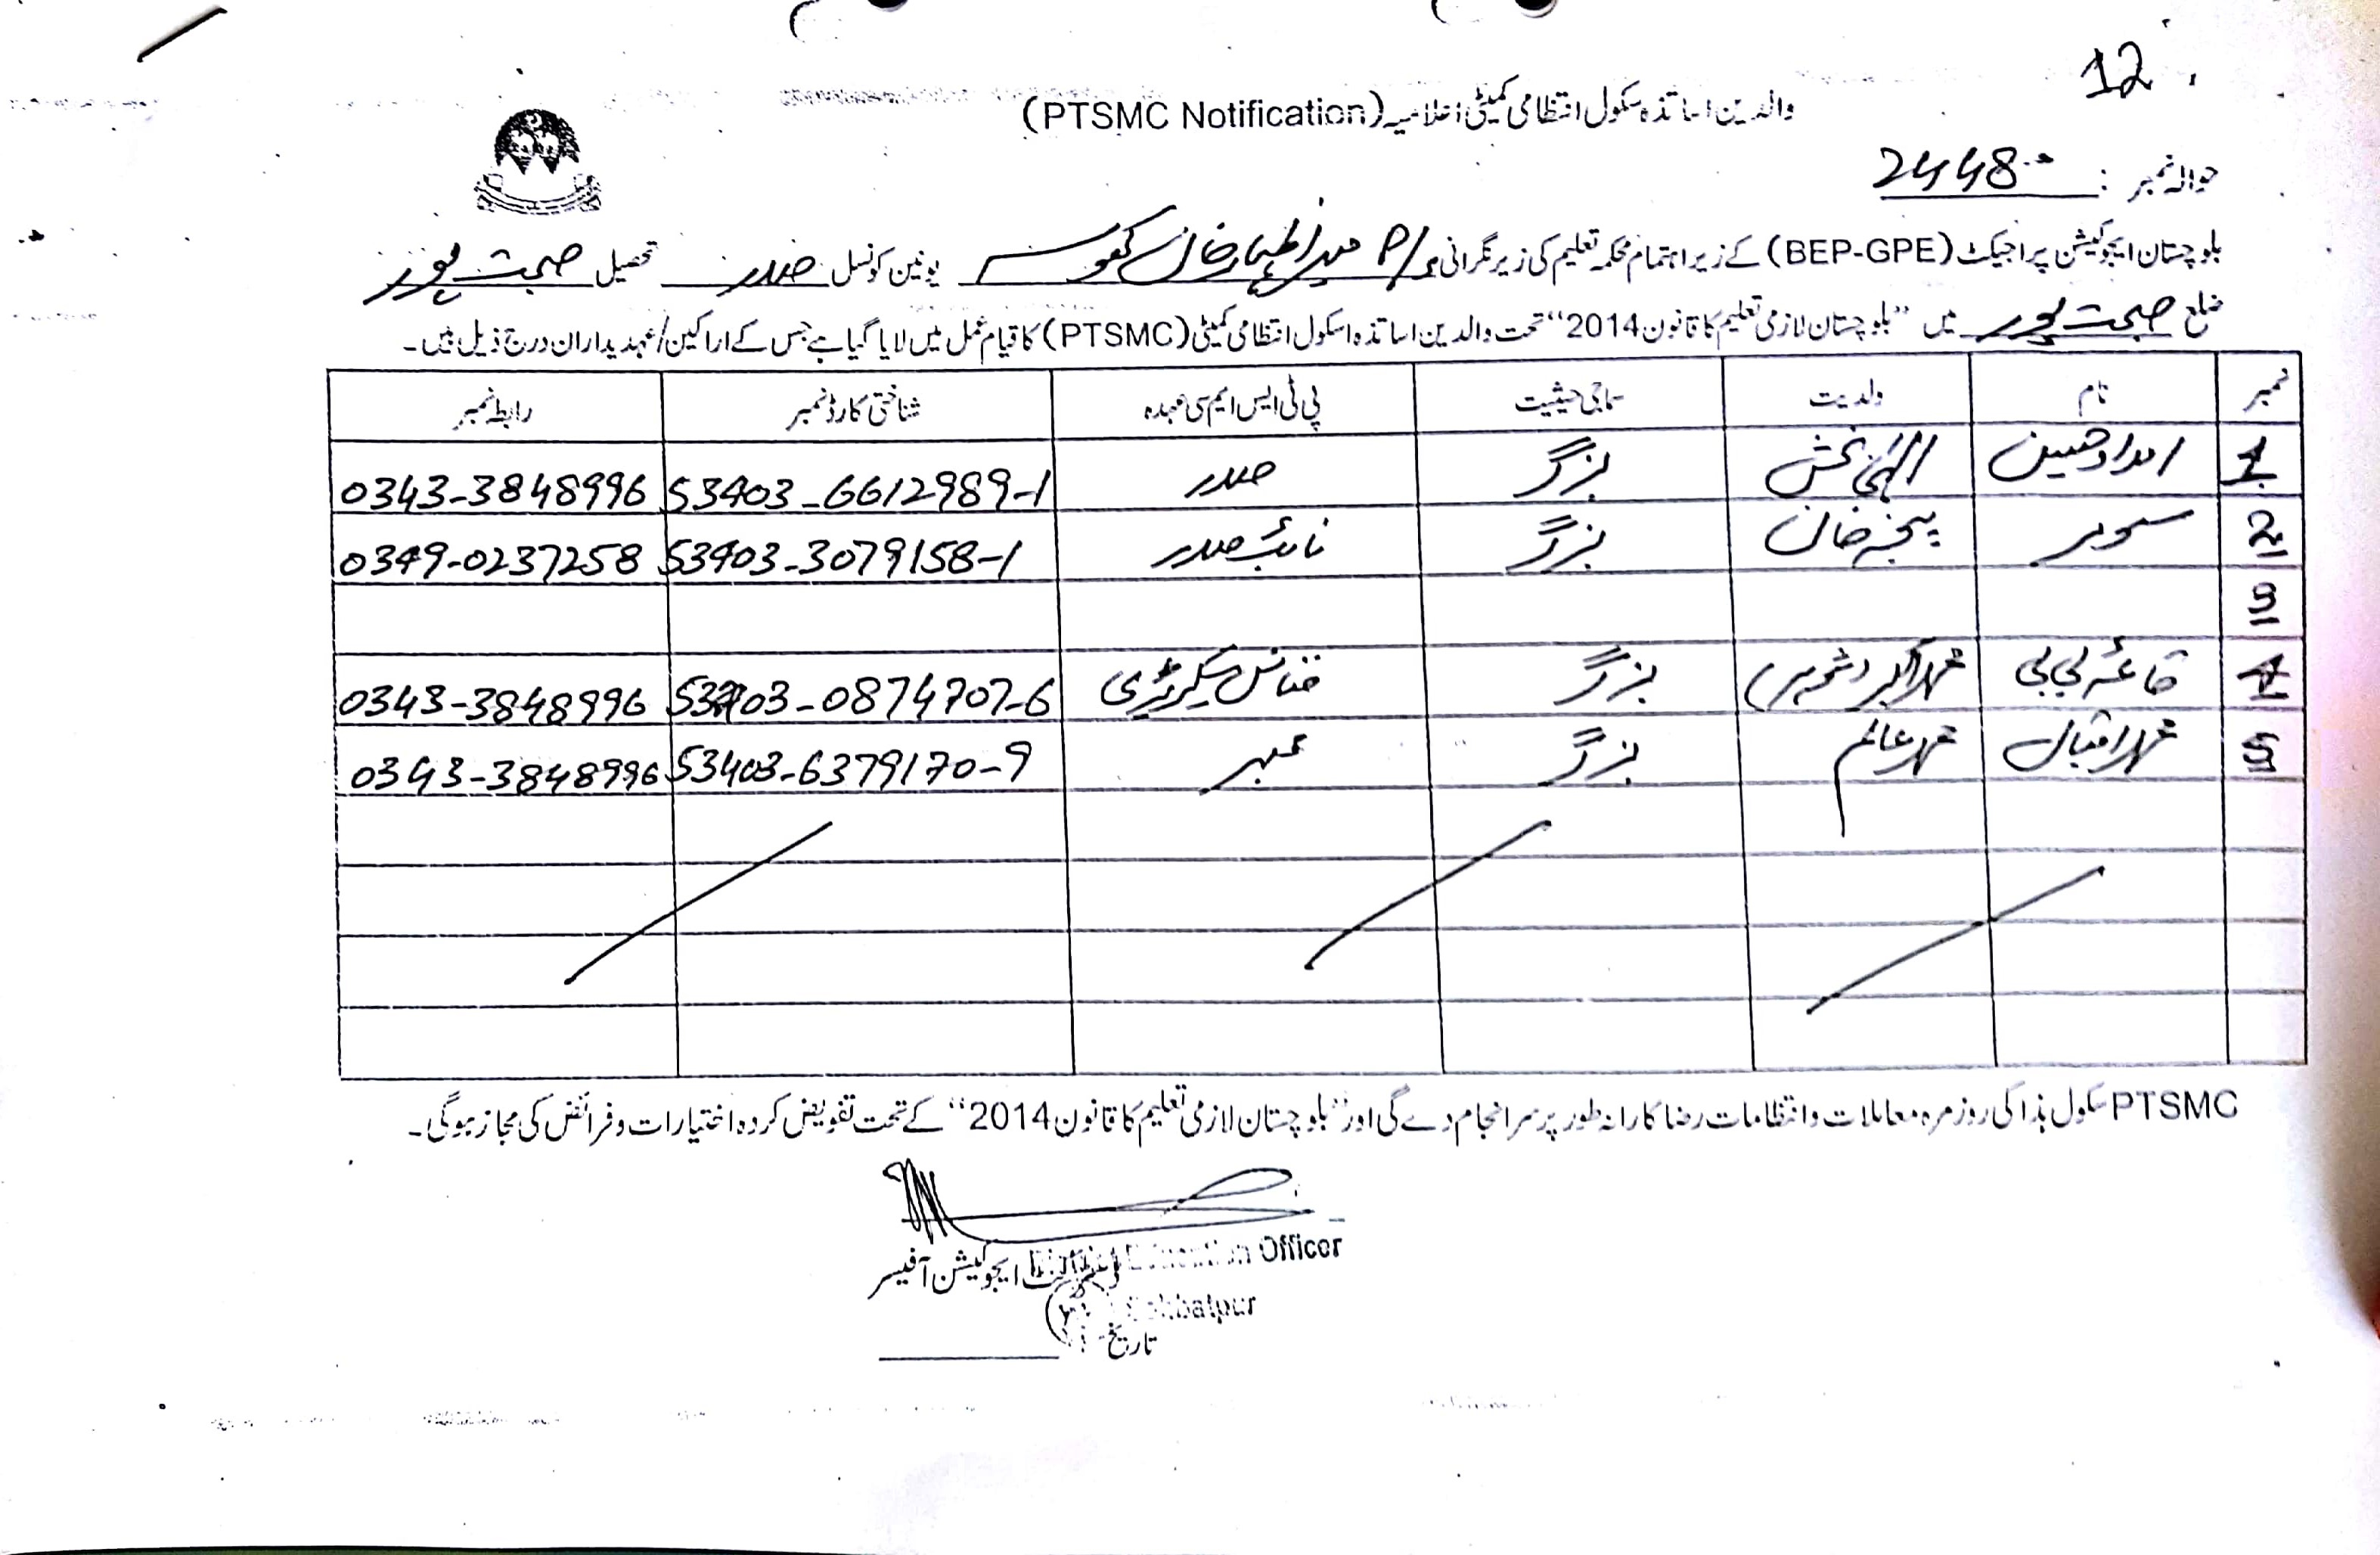 12
والدین اساتذہ سکول انتظامی کمیٹی اعلامیہ (PTSMC Notification)
حوالہ نمبر: 2448
بلوچستان ایجوکیشن پراجیکٹ (BEP-GPE) کے زیر اہتمام محکمہ تعلیم کی زیر نگرانی اظہار خان کھوسہ یونین کونسل صدر تحصیل صحبت پور
ضلع صحبت پور میں "بلوچستان لازمی تعلیم کا قانون 2014" تحت والدین اساتذہ اسکول انتظامی کمیٹی (PTSMC) کا قیام عمل میں لایا گیا ہے جس کے اراکین/عہدیداران درج ذیل ہیں۔
نمبر نام ولدیت سماجی حیثیت پی ٹی ایس ایم سی عہدہ شناختی کارڈ نمبر رابطہ نمبر
1 امداد حسین الہی بخش بزگر صدر 53403-6612989-1 0343-3848996
2 خان بزگر نائب صدر 53403-3079158-1 0349-0237258
3
4 بی بی محمد اکبر بزگر فنانس سیکریٹری 53403-0874707-6 0343-3848996
5 محمد اقبال محمد عالم بزگر ممبر 53403-6379170-9 0343-3848996
PTSMC سکول ہذا کی روزمرہ معاملات و انتظامات رضا کارانہ طور پر سر انجام دے گی اور "بلوچستان لازمی تعلیم کا قانون 2014" کے تحت تفویض کردہ اختیارات و فرائض کی مجاز ہوگی۔
District Education Officer
ڈسٹرکٹ ایجوکیشن آفیسر
Sohbatpur
تاریخ